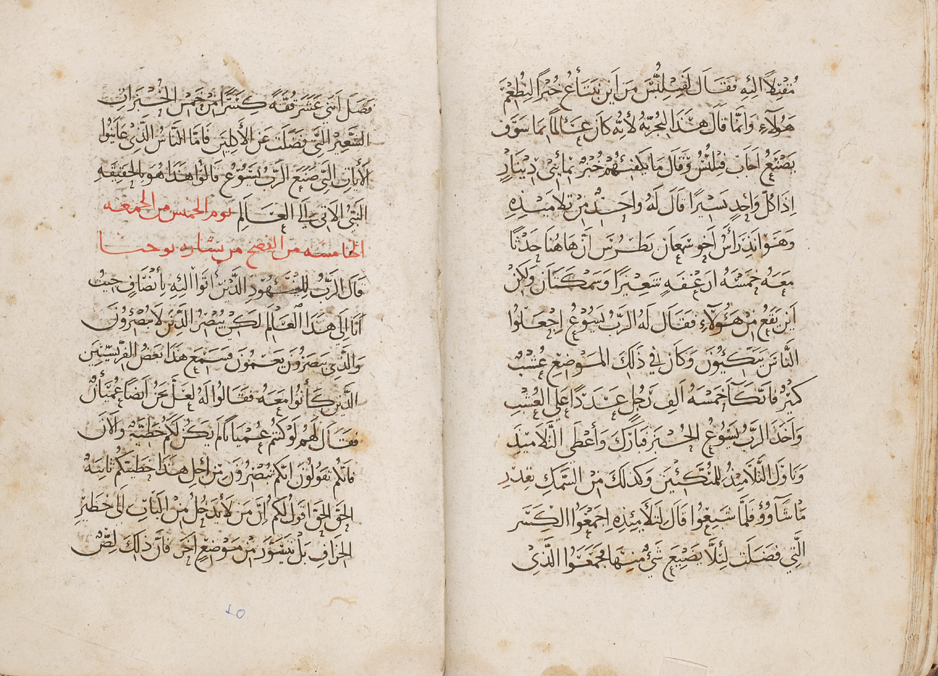 مقبلا اليه فقال لفيلبس من اين نبتاع خبزا لنطعم
هولاء وانما قال هذا ليجربه لانه كان عالما بما سوف
يصنع اجاب فيلبس وقال ما يكفيهم خبز بمائتي دينار
اذا كل واحد يسيرا قال له واحد من تلاميذه
وهو اندراس اخو شمعان بطرس ان هاهنا حدثا
معه خمسة ارغفه شعيرا وسمكتان ولاكن
اين يقع من هولاء فقال له الرب يسوع اجعلوا
الناس يتكيون وكان في ذلك الموضع عشب
كثير فاتكا خمسة الف رجل عددا على العشب
واخذ الرب يسوع الخبز فبارك واعطى التلاميذ
وناول التلاميذ للمتكئين وكذلك من السمك بقدر
ما شاووا فلما شبعوا قال لتلاميذه اجمعوا الكسر
التي فضلت لئلا يضيع شي منها فجمعوا الذي
فضل اثني عشر قفه كسرا من خمس الخبزات
الشعير التي فضلت عن الاكلين فاما الناس الذين عاينوا
الايات التي صنع الرب يسوع قالوا هذا هو بالحقيقه
النبي الاتي الى العالم يوم الخمس من الجمعه
الخامسه من الفصح من بشاره يوحنا
قال الرب لليهود الذين اتوا اليه بانصاف جيت
انا الى هذا العالم لكن يبصر الذين لا يبصرون
والذي يبصرون يعمون فسمع هذا بعض الفريسيين
الذين كانوا معه فقالوا له لعل نحن ايضا عميان
فقال لهم لو كنتم عميانا لم يكن لكم خطيه والان
فانكم تقولون انكم تبصرون من اجل هذا خطيتكم ثابته
الحق الحق اقول لكم ان من لا يدخل من الباب الى حظير
الخراف بل يتقور من موضع اخر فان ذلك لص